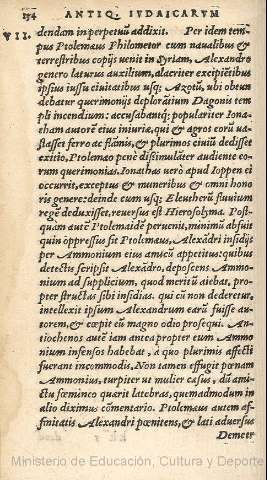 174 ANTIQ. IVDAICARVM
VII. dendam in perpetuũ addixit. Per idem tem-
pus Ptolemæus Philometor cum naualibus et
terrestribus copijs uenit in Syriam, Alexandro
genero laturus auxilium, alacriter excipiẽtibus
ipsius iussu ciuitatibus usq; Azotũ, ubi obtun
debatur querimonijs deploratiũ Dagonis tem
pli incendium: accusabantq; populariter Iona-
tham autorẽ eius iniuriæ, qui et agros eorũ ua-
stasset ferro ac flãmis, et plurimos ciuiũ dedisset
exitio, Ptolemæo pene dissimulãter audiente eo-
rum querimonias. Ionathas uerò apud Ioppen ei
occurrit, exceptus et muneribus et omni hono
ris genere: deinde cum usq; Eleutherũ fluuium
regẽ deduxisset, reuersus est Hierosolyma. Post-
quam autẽ Ptolemaidẽ peruenit, minimũ abfuit
quin oppressus sit Ptolemæus, Alexãdri insidijs
per Ammonium eius amicũ appetitus: quibus
detectis scripsit Alexãdro, deposcens Ammo-
nium ad supplicium, quod meritũ aiebat, prop-
pter structas sibi insidias. qui cũ non dederetur,
intellexit ipsum Alexandrum earũ fuisse au-
torem, et cœpit eũ magno odio prosequi. An-
tiochenos autẽ iam antea propter eum Ammo
nium infensos habebat, à quo plurimis affecti
fuerant incommodis. Non tamen effugit pœnam
Ammonius, turpiter ut mulier cæsus, dũ ami-
ctu fœmineo quærit latebras, quemadmodum in
alio diximus cõmentario. Ptolemæus autem af-
finitatis Alexandri pœnitens, et lati aduersus
Demetr
Ministerio de Educación, Cultura y Deporte